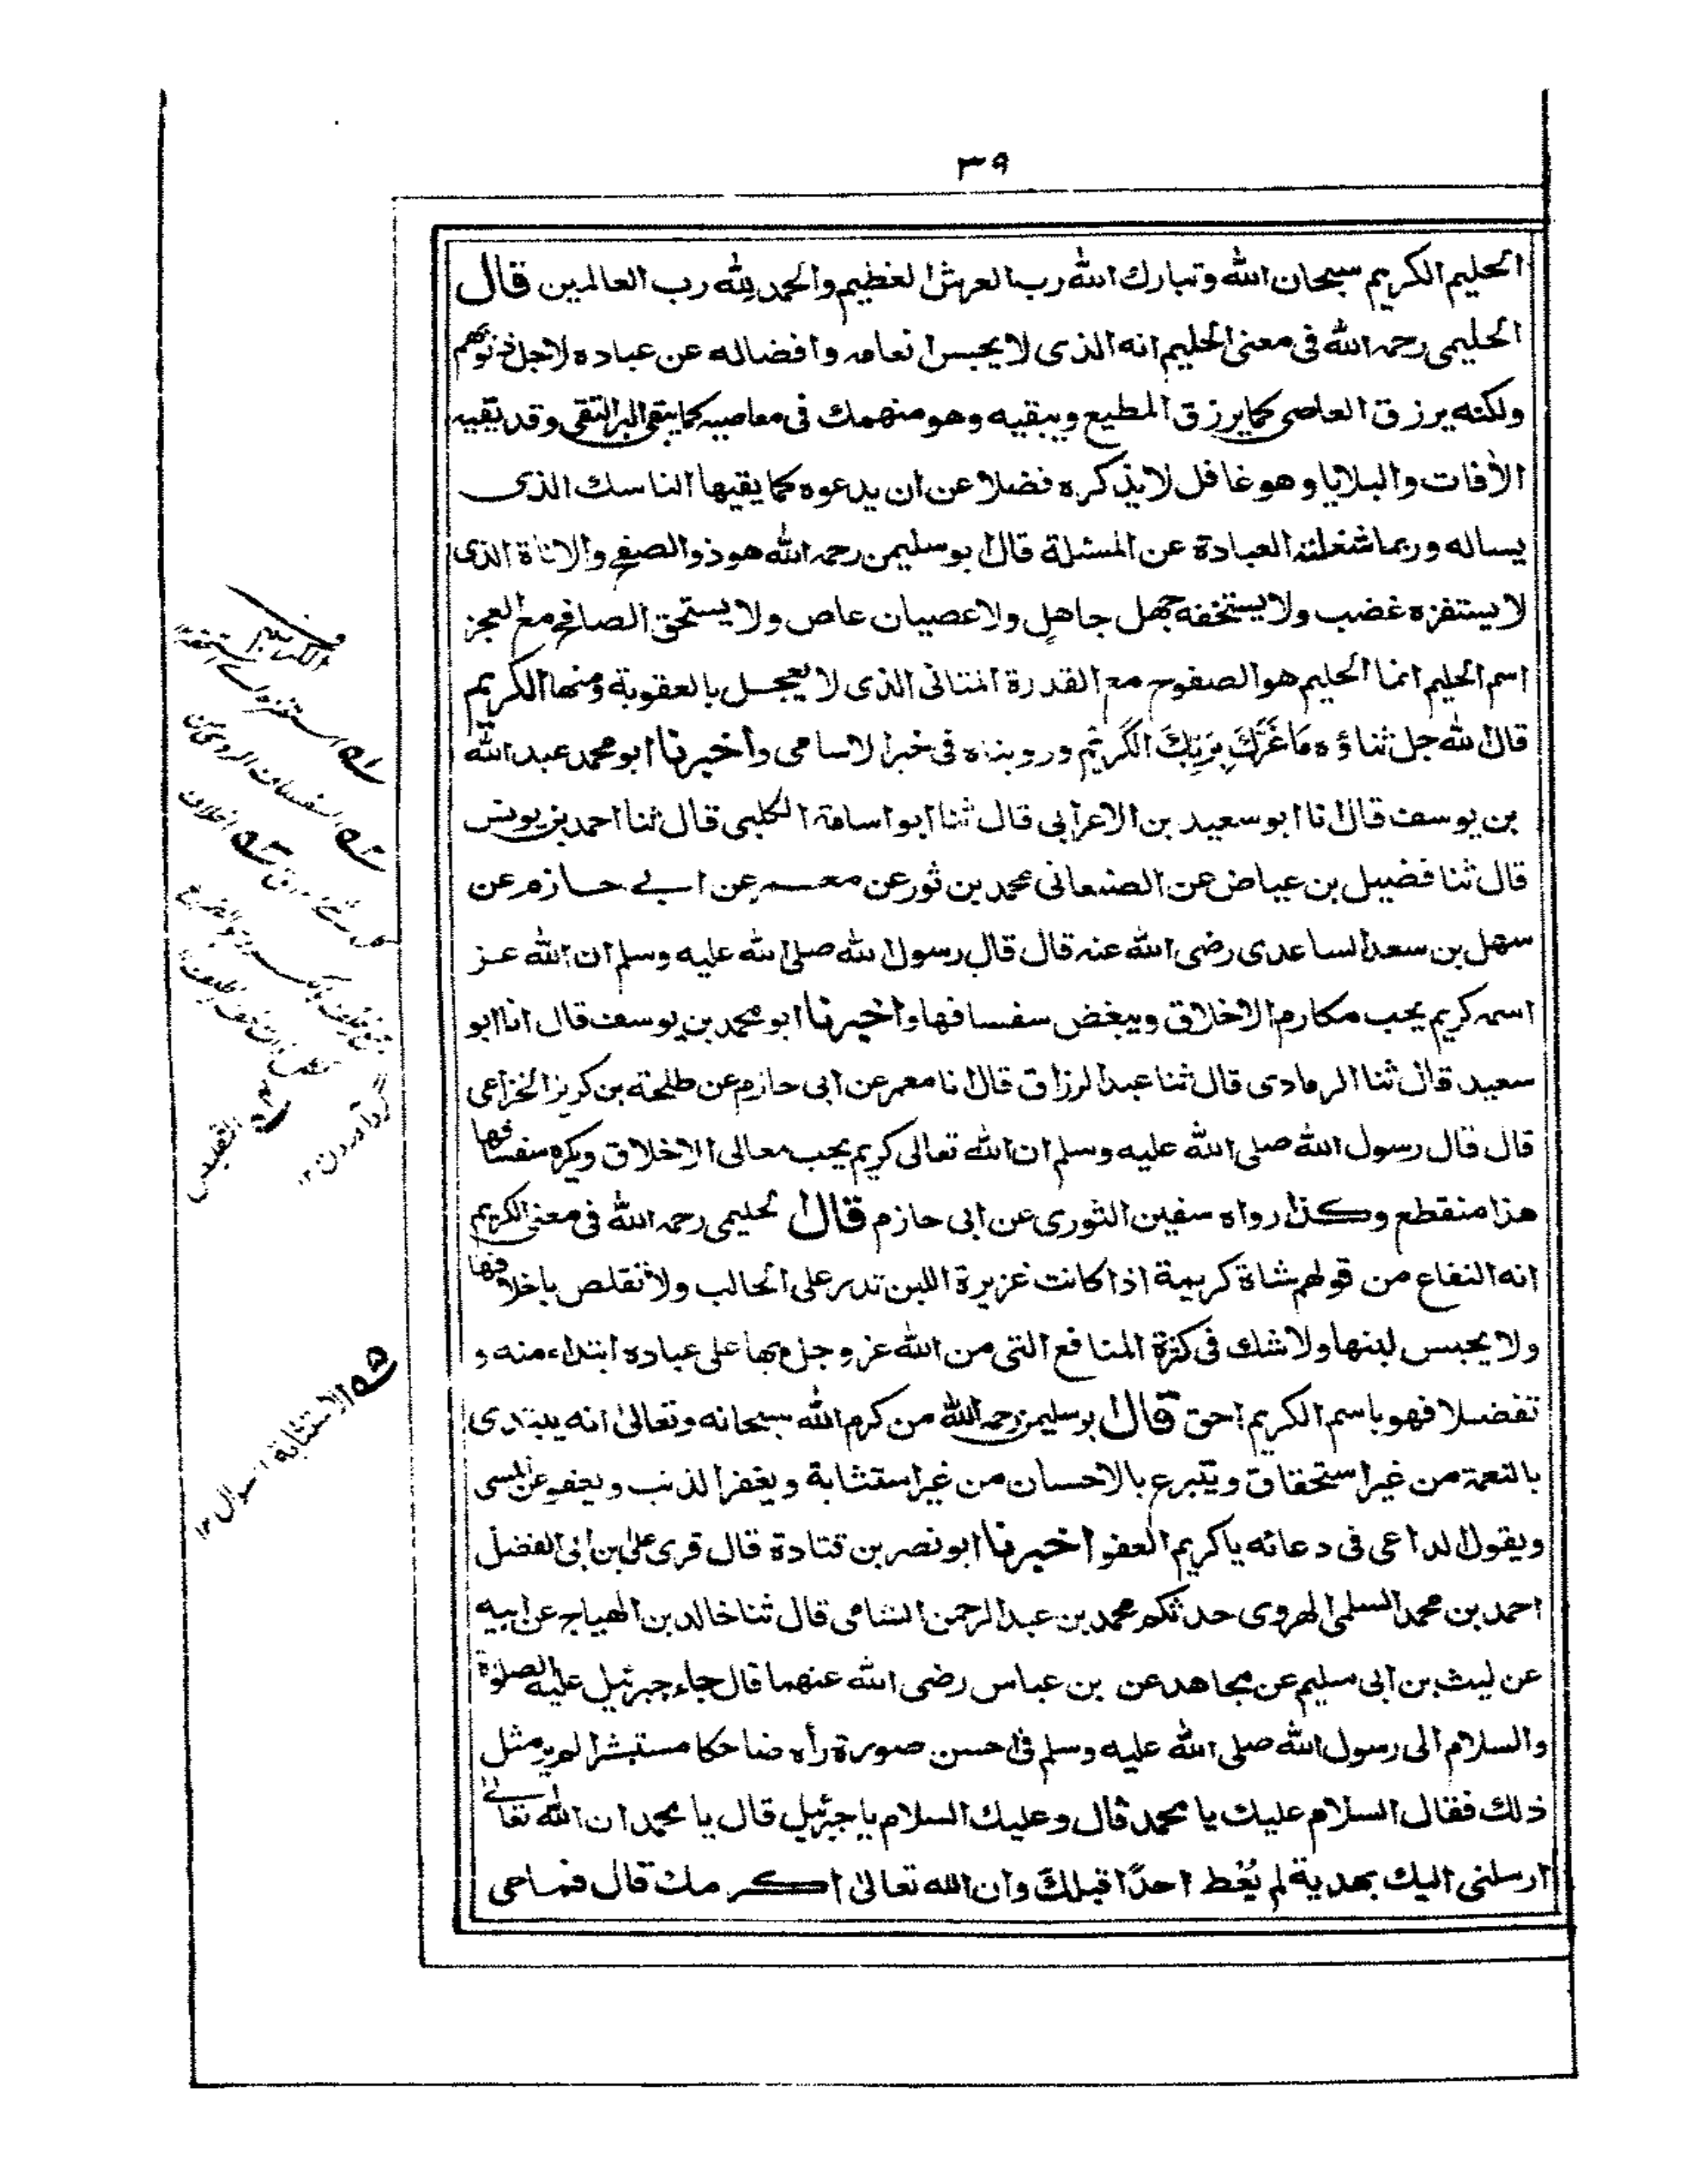 ٣٩
الحليم الكريم سبحان الله وتبارك الله رب العرش العظيم والحمد لله رب العالمين قال
الحليمى رحمه الله فى معنى الحليم انه الذى لا يحبس انعامه وافضاله عن عباده لاجل ذنوبهم
ولكنه يرزق العاصى كما يرزق المطيع ويبقيه وهو منهمك فى معاصيه كما يبقى البر التقى وقد يقيه
الأفات والبلايا وهو غافل لا يذكره فضلا عن ان يدعوه كما يقيها الناسك الذى
يساله وربما شغلته العبادة عن المسئلة قال ابو سليمن رحمه الله هو ذو الصفح والاناة الذى
لا يستفزه غضب ولا يستخفه جهل جاهل ولا عصيان عاص ولا يستحق الصافح مع العجز
اسم الحليم انما الحليم هو الصفوح مع القدرة المتانى الذى لا يعجل بالعقوبة ومنها الكريم
قال الله جل ثناؤه مَا غَرَّكَ بِرَبِّكَ الْكَرِيْمِ وروبناه فى خبر الاسامى واخبرنا ابو محمد عبد الله
بن يوسف قال انا ابو سعيد بن الاعرابى قال ثنا ابو اسامة الكلبى قال ثنا احمد بن يونس
قال ثنا فضيل بن عياض عن الصنعانى محمد بن ثور عن معمر عن ابي حازم عن
سهل بن سعد الساعدى رضى الله عنه قال قال رسول الله صلى الله عليه وسلم ان الله عز
اسمه كريم يحب مكارم الاخلاق ويبغض سفسافها واخبرنا ابو محمد بن يوسف قال انا ابو
سعيد قال ثنا الرمادى قال ثنا عبد الرزاق قال انا معمر عن ابى حازم عن طلحة بن كريز الخزاعى
قال قال رسول الله صلى الله عليه وسلم ان الله تعالى كريم يحب معالى الاخلاق ويكره سفسافها
هذا منقطع وكذا رواه سفين الثورى عن ابى حازم قال الحليمى رحمه الله فى معنى الكريم
انه النفاع من قولهم شاة كريمة اذا كانت غزيرة اللبن تدر على الحالب ولا تقلص باخلافها
ولا يحبس لبنها ولا شك فى كثرة المنافع التى من الله عز وجل بها على عباده ابتداء منه و
تفضلا فهو باسم الكريم احق قال ابو سليمن رحمه الله من كرم الله سبحانه وتعالى انه يبتدى
بالنعمة من غير استحقاق ويتبرع بالاحسان من غير استثابة ويغفر الذنب ويعفو عن المسى
ويقول الداعى فى دعائه يا كريم العفو اخبرنا ابو نصر بن قتادة قال قرى على بن ابى الفضل
احمد بن محمد السلمى الهروى حدثكم محمد بن عبد الرحمن الشامى قال ثنا خالد بن الهياج عن ابيه
عن ليث بن ابى سليم عن مجاهد عن بن عباس رضى الله عنهما قال جاء جبرئيل عليه الصلوة
والسلام الى رسول الله صلى الله عليه وسلم فى احسن صورة رأه ضاحكا مستبشرا لم ير مثل
ذلك فقال السلام عليك يا محمد قال وعليك السلام يا جبرئيل قال يا محمد ان الله تعالى
ارسلنى اليك بهدية لم يُعْط احدًا قبلك وان الله تعالىٰ اكرمك قال فما هى
الكريم
استفزه اے استخفه
السفساف الردى من
التقليص
گرد آمدن ١٢
٥ الاستثابة سوال ١٢